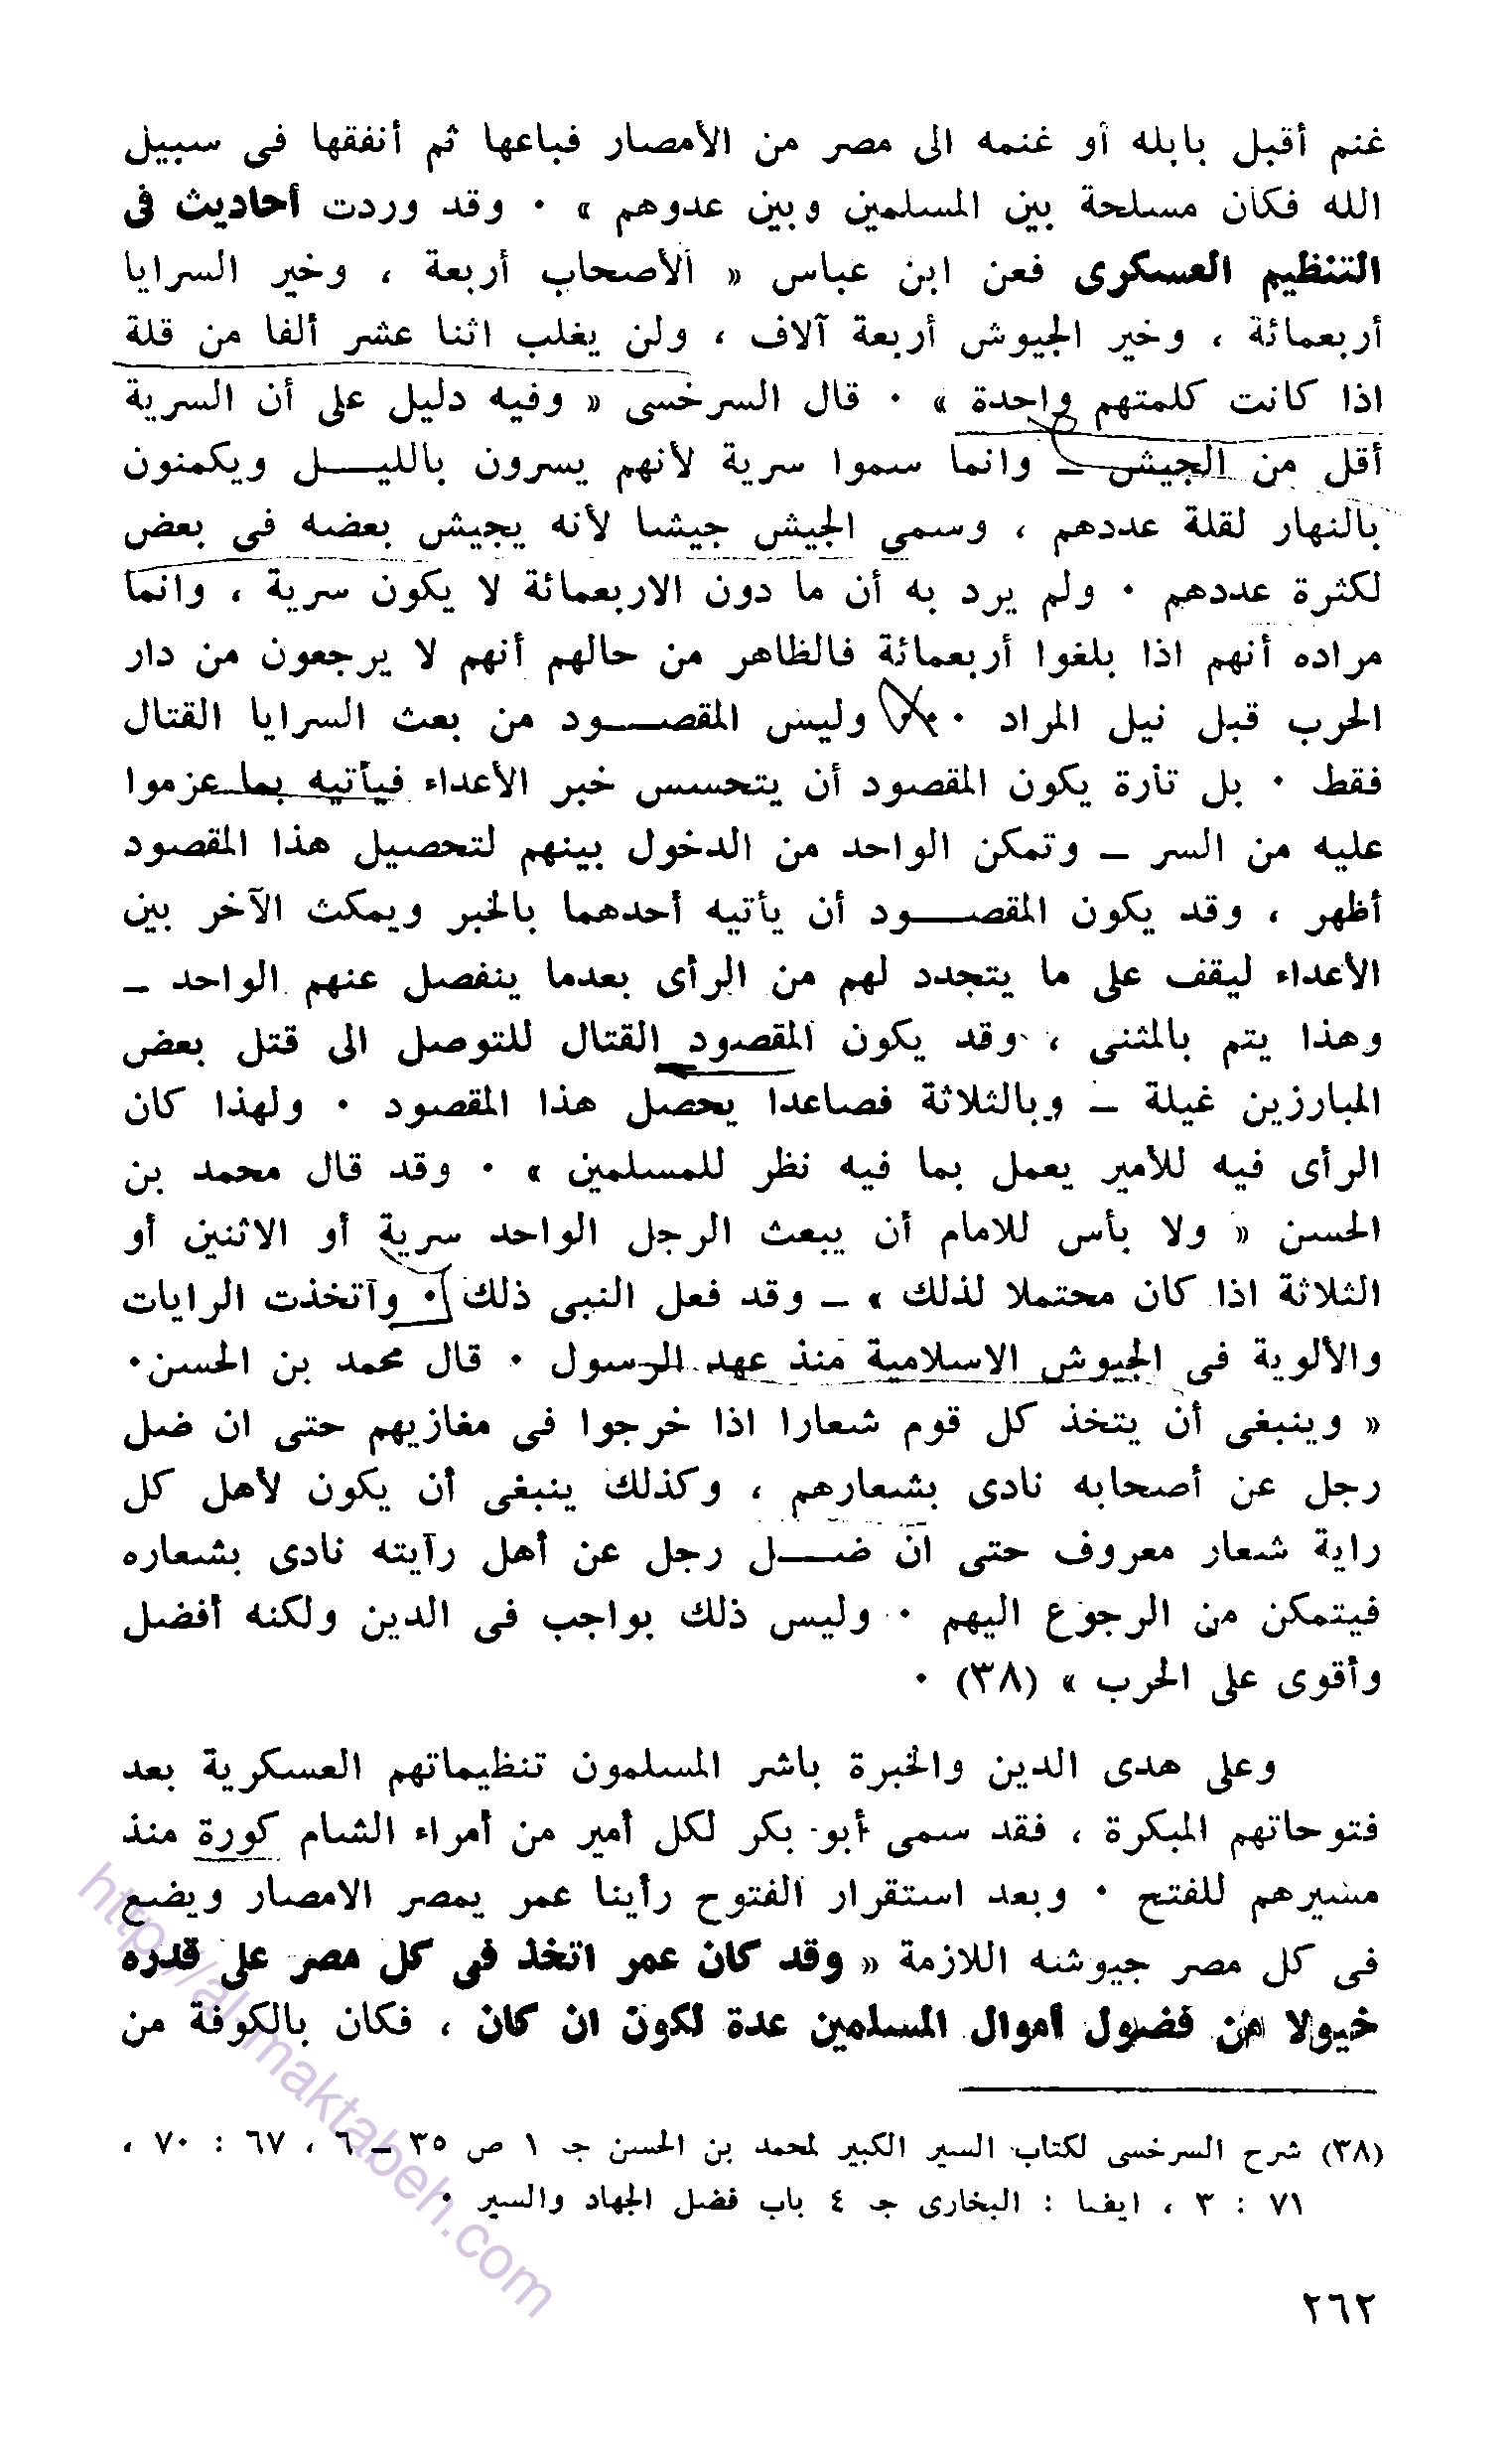 غنم أقبل بابله أو غنمه الى مصر من الأمصار فباعها ثم أنفقها فى سبيل
الله فكان مسلحة بين المسلمين وبين عدوهم » ٠ وقد وردت أحاديث فى
التنظيم العسكرى فعن ابن عباس « الأصحاب أربعة ، وخير السرايا
أربعمائة ، وخير الجيوش أربعة آلاف ، ولن يغلب اثنا عشر ألفا من قلة
اذا كانت كلمتهم واحدة » ٠ قال السرخسى « وفيه دليل على أن السرية
أقل من الجيش ــ وانما سموا سرية لأنهم يسرون بالليــــل ويكمنون
بالنهار لقلة عددهم ، وسمى الجيش جيشا لأنه يجيش بعضه فى بعض
لكثرة عددهم ٠ ولم يرد به أن ما دون الاربعمائة لا يكون سرية ، وانما
مراده أنهم اذا بلغوا أربعمائة فالظاهر من حالهم أنهم لا يرجعون من دار
الحرب قبل نيل المراد ٠٠٠ وليس المقصــــود من بعث السرايا القتال
فقط ٠ بل تارة يكون المقصود أن يتحسس خبر الأعداء فيأتيه بما عزموا
عليه من السر ــ وتمكن الواحد من الدخول بينهم لتحصيل هذا المقصود
أظهر ، وقد يكون المقصــــود أن يأتيه أحدهما بالخبر ويمكث الآخر بين
الأعداء ليقف على ما يتجدد لهم من الرأى بعدما ينفصل عنهم الواحد ــ
وهذا يتم بالمثنى ، وقد يكون المقصود القتال للتوصل الى قتل بعض
المبارزين غيلة ــ وبالثلاثة فصاعدا يحصل هذا المقصود ٠ ولهذا كان
الرأى فيه للأمير يعمل بما فيه نظر للمسلمين » ٠ وقد قال محمد بن
الحسن « ولا بأس للامام أن يبعث الرجل الواحد سرية أو الاثنين أو
الثلاثة اذا كان محتملا لذلك » ــ وقد فعل النبى ذلك ٠ واتخذت الرايات
والألوية فى الجيوش الاسلامية منذ عهد الرسول ٠ قال محمد بن الحسن٠
« وينبغى أن يتخذ كل قوم شعارا اذا خرجوا فى مغازيهم حتى ان ضل
رجل عن أصحابه نادى بشعارهم ، وكذلك ينبغى أن يكون لأهل كل
راية شعار معروف حتى ان ضــــل رجل عن أهل رايته نادى بشعاره
فيتمكن من الرجوع اليهم ٠ وليس ذلك بواجب فى الدين ولكنه أفضل
وأقوى على الحرب » (٣٨) ٠
وعلى هدى الدين والخبرة باشر المسلمون تنظيماتهم العسكرية بعد
فتوحاتهم المبكرة ، فقد سمى أبو بكر لكل أمير من أمراء الشام كورة منذ
مسيرهم للفتح ٠ وبعد استقرار الفتوح رأينا عمر يمصر الامصار ويضع
فى كل مصر جيوشه اللازمة « وقد كان عمر اتخذ فى كل مصر على قدره
خيولا من فضول أموال المسلمين عدة لكون ان كان ، فكان بالكوفة من
(٣٨) شرح السرخسى لكتاب السير الكبير لمحمد بن الحسن جـ ١ ص ٣٥ ــ ٦ ، ٦٧ : ٧٠ ،
٧١ : ٣ ، ايضا : البخارى جـ ٤ باب فضل الجهاد والسير ٠
٢٦٢
http://al-maktabeh.com